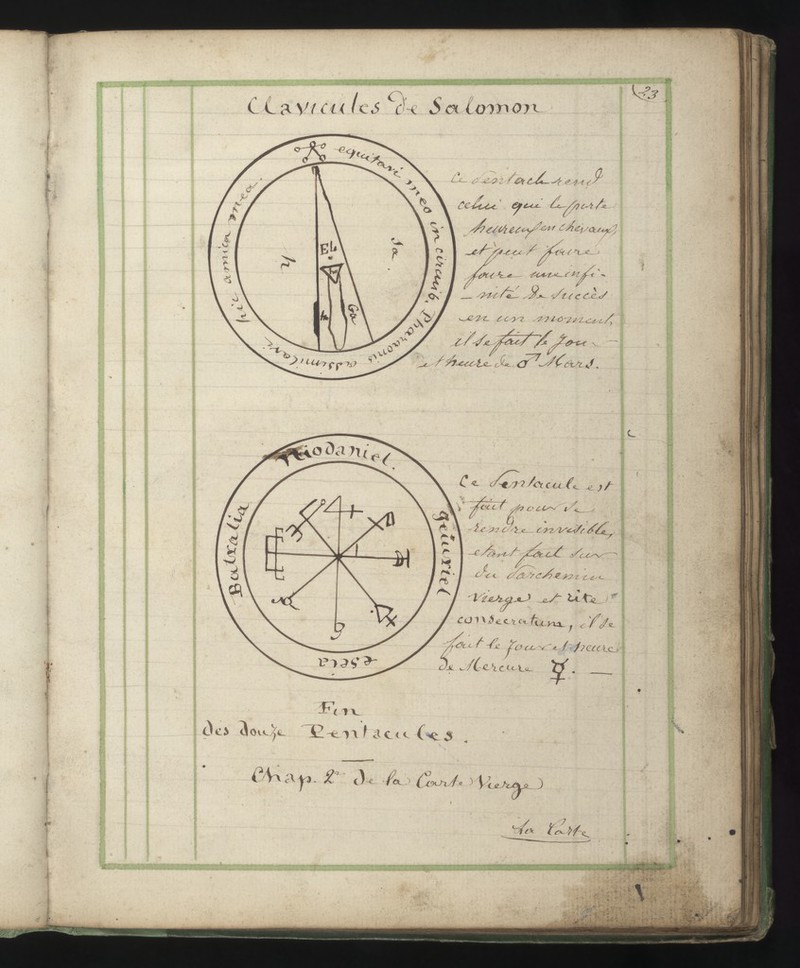 23
Clavicules de Salomon
equitavi meo in circuib. Pharaonis assimilavi
hic amica mea.
EL
Sa.
h
Ga
Ce Pentacle rend
celui qui le porte
heureux en chevaux,
et peut faire
faire une infi-
-nité de succès
en un moment,
il se fait le Jour
et heure de ♂ Mars.
niodaniel.
Balxalia
eseia
Ce Pentacule est
fait pour se
rendre invisible,
etant fait sur
du Parchemin
Vierge et rite
consecratum, il se
fait le Jour et heure
de Mercure ☿. —
Fin
des douze Pentacules.
Chap. 2e De la Carte Vierge
La Carte